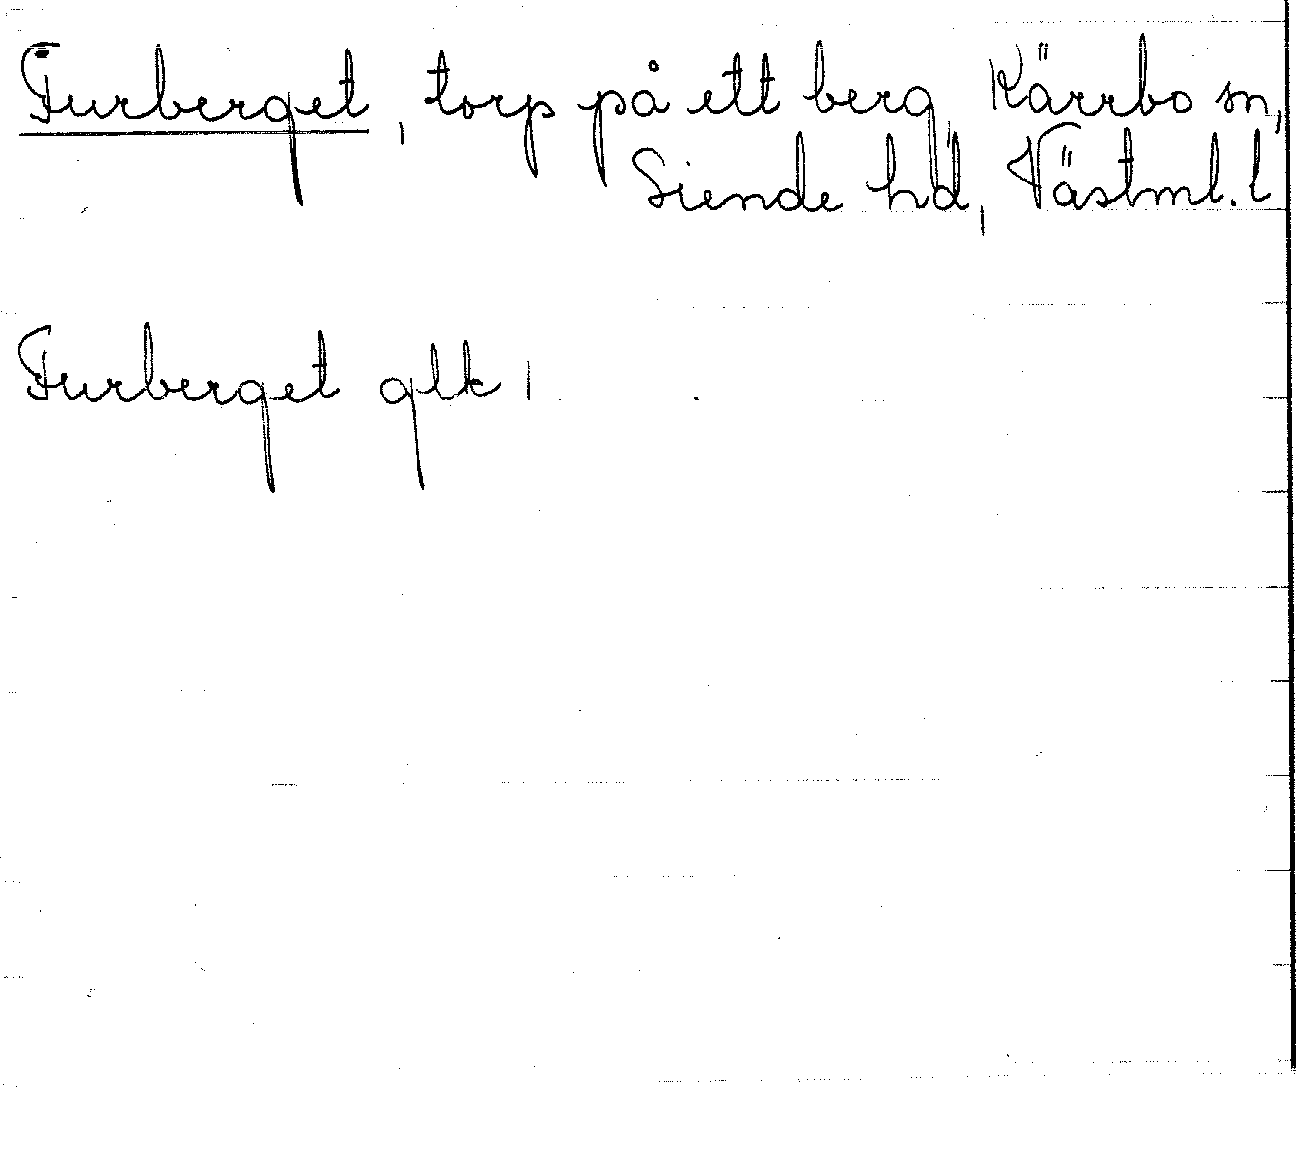 Furberget, torp på ett berg, Kärrbo sn,
Siende hd, Västml. l
Furberget glk 1